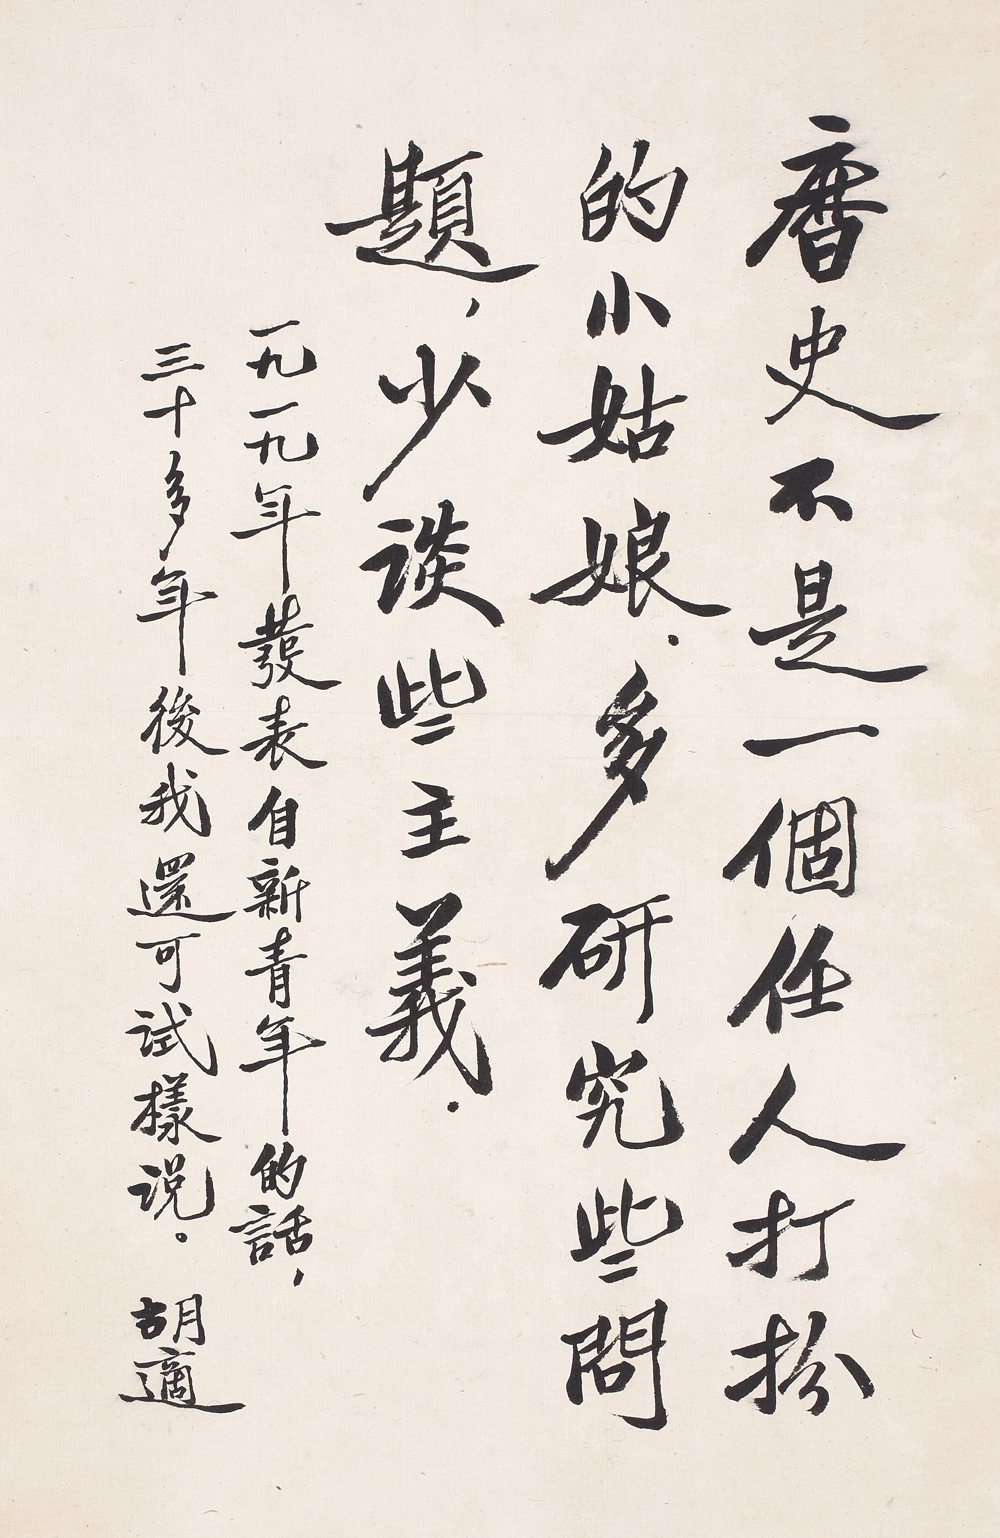 曆史不是一個任人打扮
的小姑娘．多研究些問
題，少談些主義．
一九一九年發表自新青年的話，
三十多年後我還可試樣説。
胡適